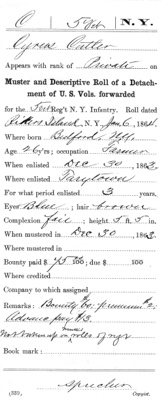 C | 5 Vet | N.Y.
Cyrus Cutler
Appears with rank of Private on
Muster and Descriptive Roll of a Detach-
ment of U. S. Vols. forwarded
for the 5 Vet Reg't N. Y. Infantry. Roll dated
Rikers Island, N.Y. Jan 6, 1864.
Where born Bedford
Age 26 y'rs; occupation Farmer
When enlisted Dec 30, 1863
Where enlisted Tarytown
For what period enlisted 3 years.
Eyes Blue; hair brown
Complexion fair; height 5 ft. 5 in.
When mustered in Dec 30, 1863
Where mustered in
Bounty paid $ 100; due $ 100
Where credited
Company to which assigned
Remarks: Bounty $60: premium $2:
Advance pay $13.
Not borne on rolls of regt
Book mark:
(339) Copyist.